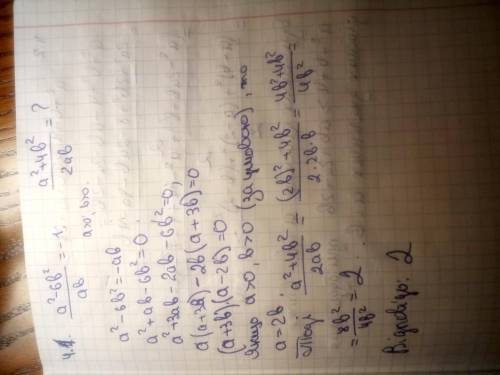 4.1. (a²-6b²)/(ab) = -1; (a²+4b²)/(2ab) = ?
a>0, b>0.
a²-6b²=-ab
a²+ab-6b²=0;
a²+3ab-2ab-6b²=0;
a(a+3b)-2b(a+3b)=0
(a+3b)(a-2b)=0
якщо a>0, b>0 (за умовою), то
a=2b.
Тоді (a²+4b²)/(2ab) = ((2b)²+4b²)/(2·2b·b) = (4b²+4b²)/(4b²) =
= 8b²/4b² = 2.
Відповідь: 2